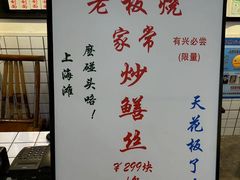 老板烧
家常炒鳝丝
¥299块
有兴必尝
(限量)
天花板了
麽碰头咯！
上海滩